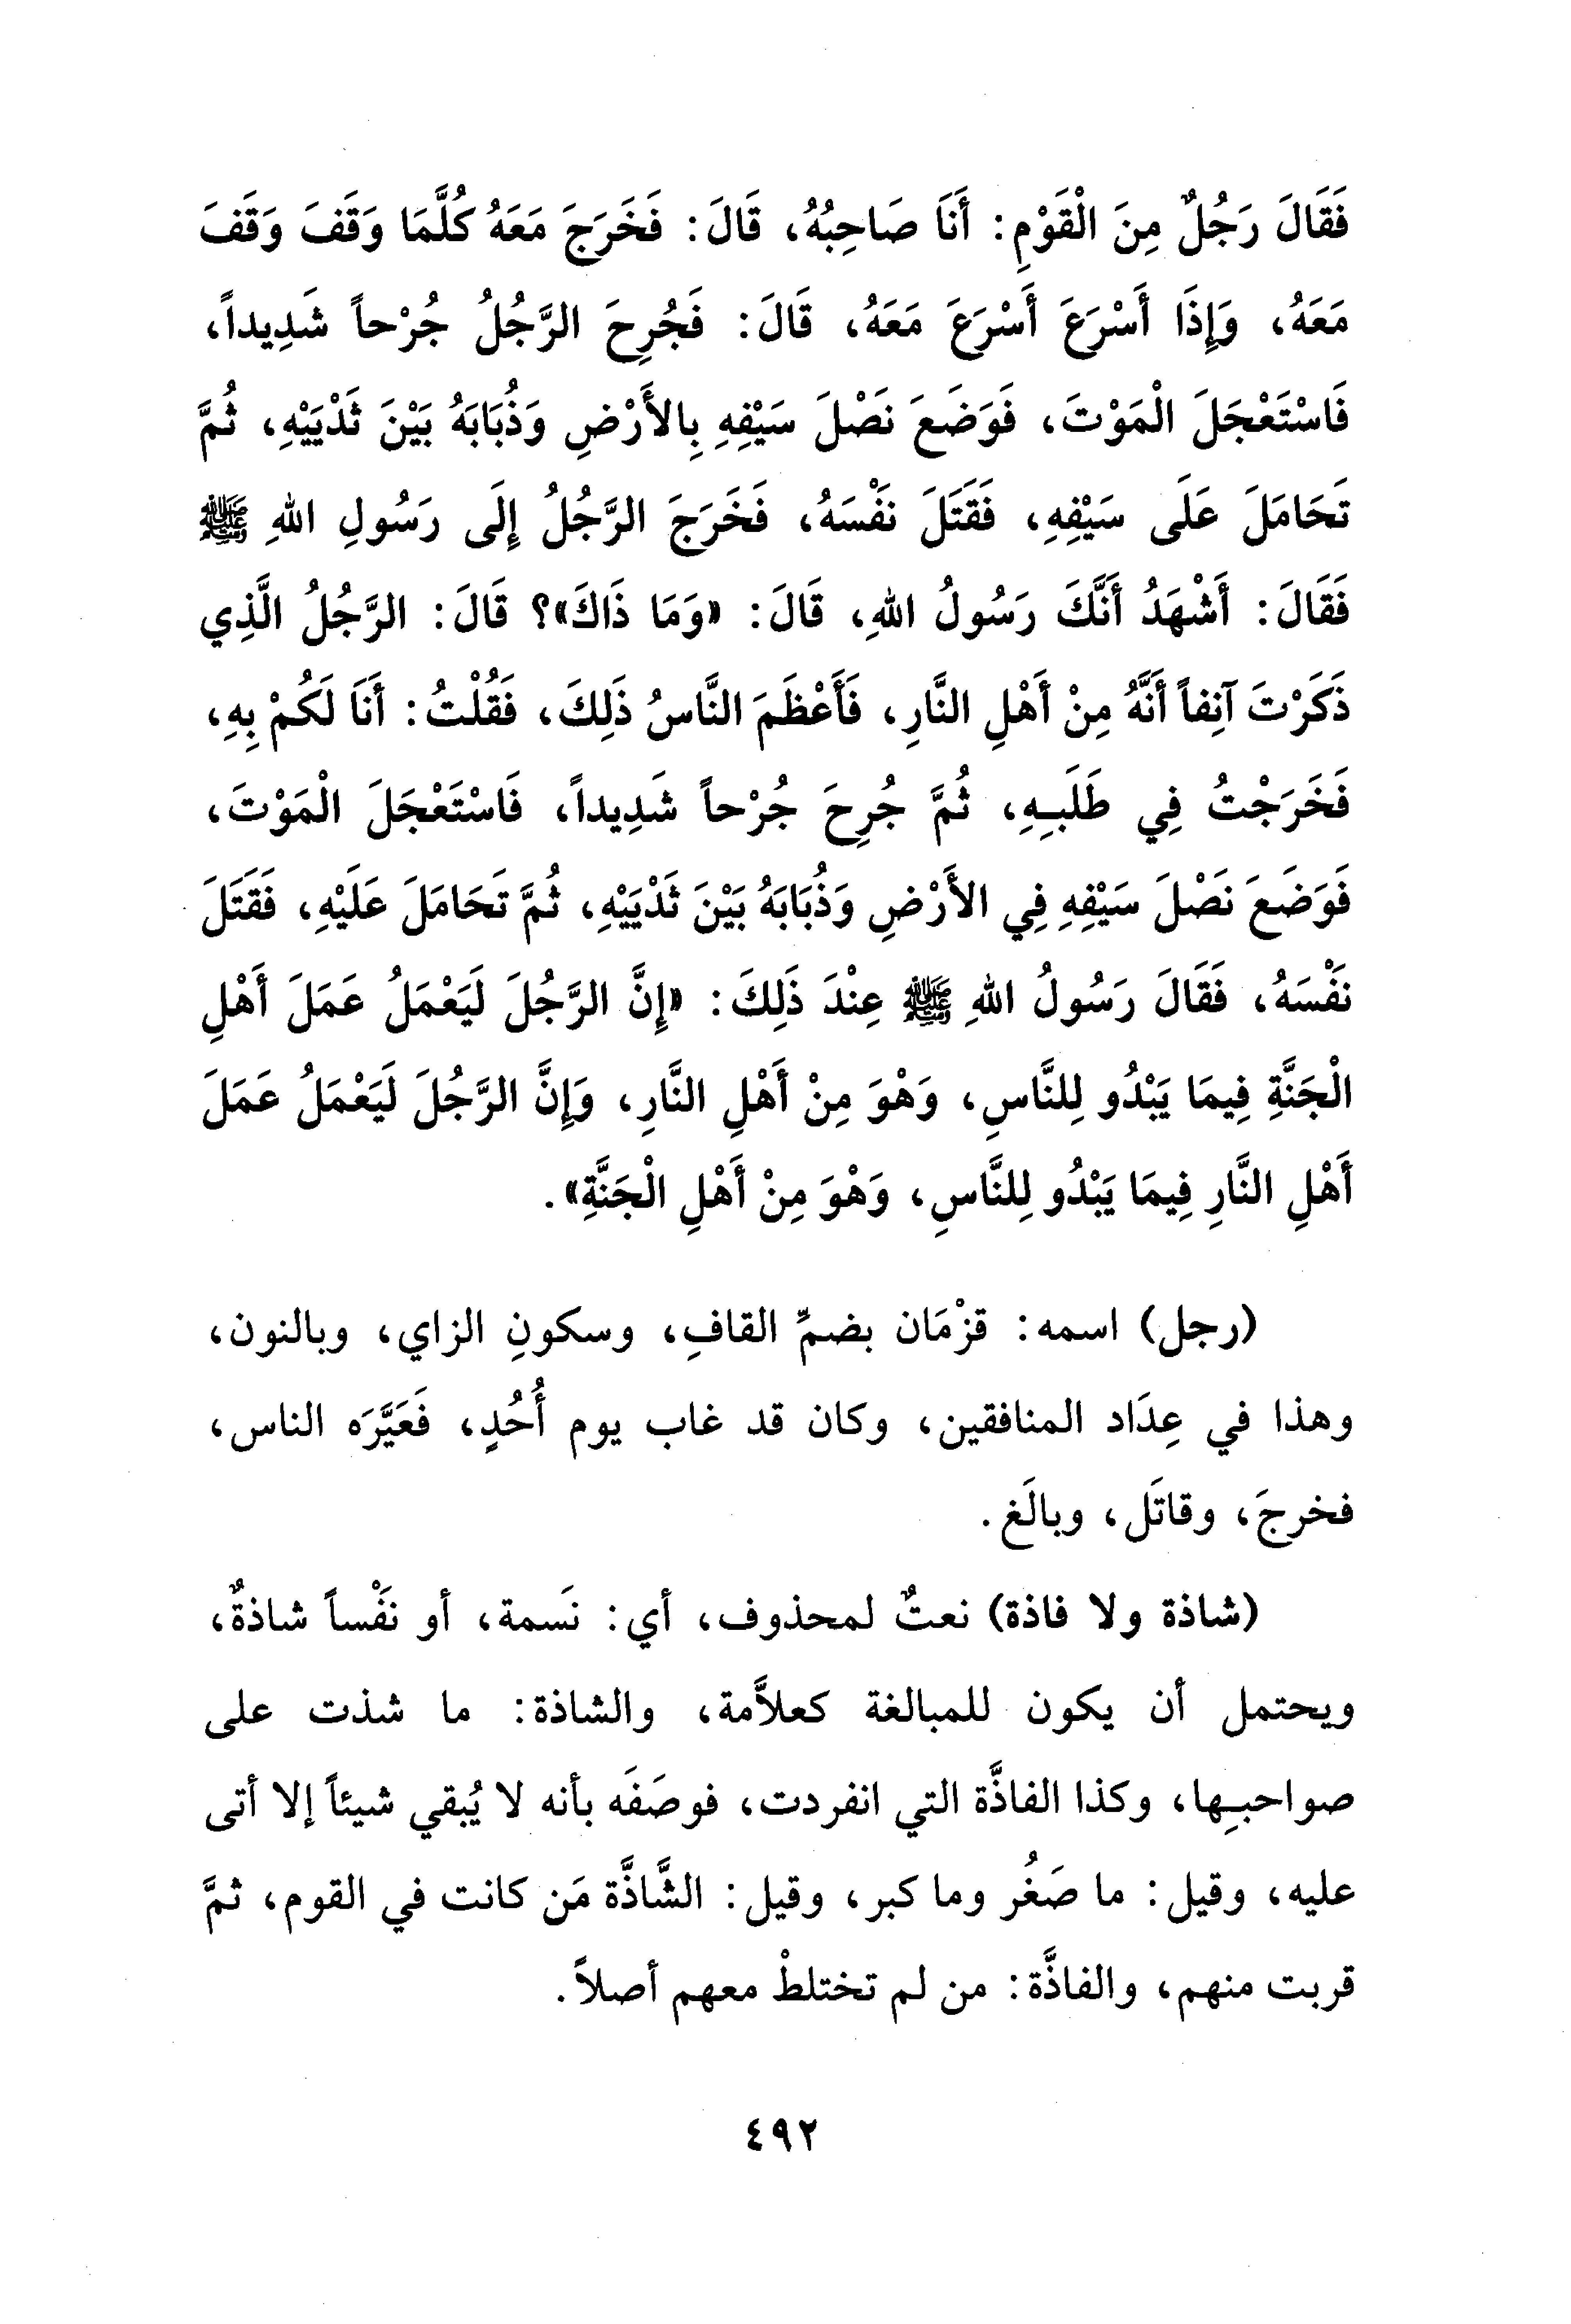 فَقَالَ رَجُلٌ مِنَ الْقَوْمِ: أَنَا صَاحِبُهُ، قَالَ: فَخَرَجَ مَعَهُ كُلَّمَا وَقَفَ وَقَفَ
مَعَهُ، وَإِذَا أَسْرَعَ أَسْرَعَ مَعَهُ، قَالَ: فَجُرِحَ الرَّجُلُ جُرْحاً شَدِيداً،
فَاسْتَعْجَلَ الْمَوْتَ، فَوَضَعَ نَصْلَ سَيْفِهِ بِالأَرْضِ وَذُبَابَهُ بَيْنَ ثَدْيَيْهِ، ثُمَّ
تَحَامَلَ عَلَى سَيْفِهِ، فَقَتَلَ نَفْسَهُ، فَخَرَجَ الرَّجُلُ إِلَى رَسُولِ اللهِ ﷺ
فَقَالَ: أَشْهَدُ أَنَّكَ رَسُولُ اللهِ، قَالَ: «وَمَا ذَاكَ»؟ قَالَ: الرَّجُلُ الَّذِي
ذَكَرْتَ آنِفاً أَنَّهُ مِنْ أَهْلِ النَّارِ، فَأَعْظَمَ النَّاسُ ذَلِكَ، فَقُلْتُ: أَنَا لَكُمْ بِهِ،
فَخَرَجْتُ فِي طَلَبِهِ، ثُمَّ جُرِحَ جُرْحاً شَدِيداً، فَاسْتَعْجَلَ الْمَوْتَ،
فَوَضَعَ نَصْلَ سَيْفِهِ فِي الأَرْضِ وَذُبَابَهُ بَيْنَ ثَدْيَيْهِ، ثُمَّ تَحَامَلَ عَلَيْهِ، فَقَتَلَ
نَفْسَهُ، فَقَالَ رَسُولُ اللهِ ﷺ عِنْدَ ذَلِكَ: «إِنَّ الرَّجُلَ لَيَعْمَلُ عَمَلَ أَهْلِ
الْجَنَّةِ فِيمَا يَبْدُو لِلنَّاسِ، وَهْوَ مِنْ أَهْلِ النَّارِ، وَإِنَّ الرَّجُلَ لَيَعْمَلُ عَمَلَ
أَهْلِ النَّارِ فِيمَا يَبْدُو لِلنَّاسِ، وَهْوَ مِنْ أَهْلِ الْجَنَّةِ».
(رجل) اسمه: قزْمَان بضمِّ القافِ، وسكونِ الزاي، وبالنون،
وهذا في عِدَاد المنافقين، وكان قد غاب يوم أُحُدٍ، فَعَيَّرَه الناس،
فخرجَ، وقاتَل، وبالَغ.
(شاذة ولا فاذة) نعتٌ لمحذوف، أي: نَسمة، أو نَفْساً شاذةٌ،
ويحتمل أن يكون للمبالغة كعلاَّمة، والشاذة: ما شذت على
صواحبِها، وكذا الفاذَّة التي انفردت، فوصَفَه بأنه لا يُبقي شيئاً إلا أتى
عليه، وقيل: ما صَغُر وما كبر، وقيل: الشَّاذَّة مَن كانت في القوم، ثمَّ
قربت منهم، والفاذَّة: من لم تختلطْ معهم أصلاً.
٤٩٢